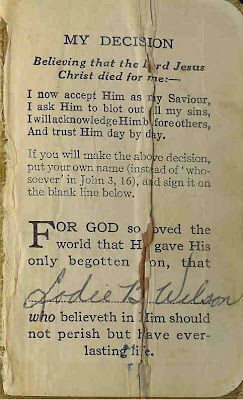 MY DECISION
Believing that the Lord Jesus
Christ died for me:—
I now accept Him as my Saviour,
I ask Him to blot out all my sins,
I will acknowledge Him before others,
And trust Him day by day.
If you will make the above decision,
put your own name (instead of 'who-
soever' in John 3, 16), and sign it on
the blank line below.
FOR GOD so loved the
world that He gave His
only begotten Son, that
Lodie B Wilson
who believeth in Him should
not perish but have ever-
lasting life.